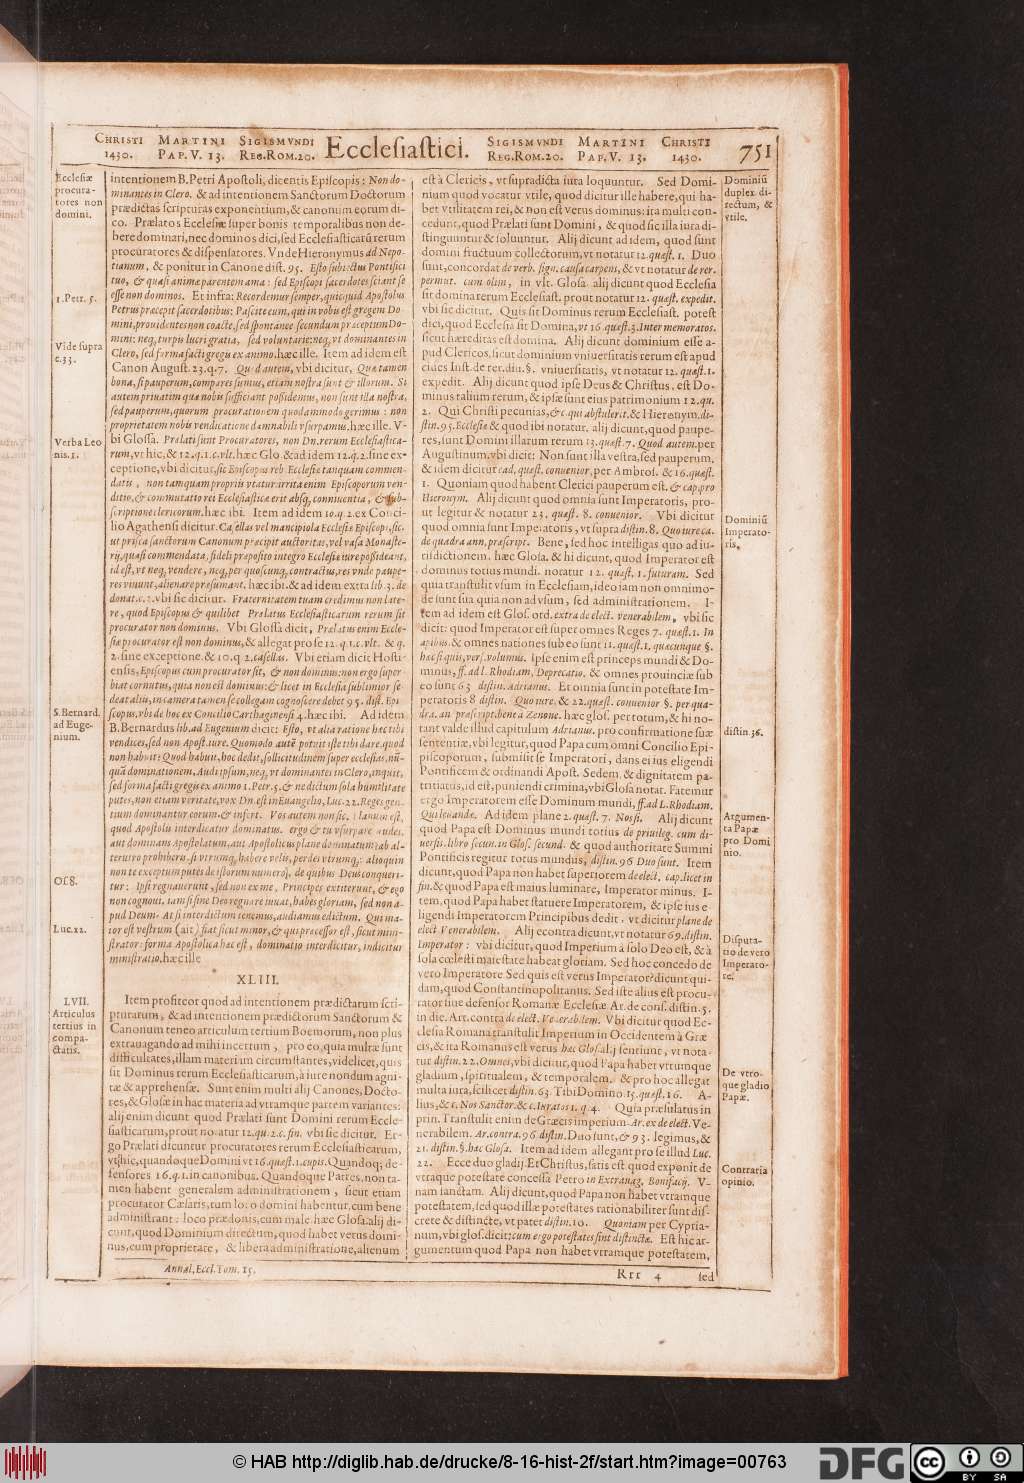 CHRISTI MARTINI SIGISMVNDI Ecclesiastici. SIGISMVNDI MARTINI CHRISTI 751
1430. PAP. V. 13. REG.ROM.20. REG.ROM.20. PAP. V. 13. 1430.
Ecclesiæ
procura-
tores non
domini.
1.Petr. 5.
Vide supra
c.33.
Verba Leo
nis.1.
S.Bernard.
ad Euge-
nium.
Of.8.
Luc.22.
LVII.
Articulus
tertius in
compa-
ctatis.
intentionem B.Petri Apostoli, dicentis Episcopis: Non do-
minantes in Clero. & ad intentionem Sanctorum Doctorum
prædictas scripturas exponentium, & canonum eorum di-
co. Prælatos Ecclesiæ super bonis temporalibus non de-
bere dominari, nec dominos dici, sed Ecclesiasticarũ rerum
procuratores & dispensatores. Vnde Hieronymus ad Nepo-
tianum, & ponitur in Canone dist. 95. Esto subiectus Pontifici
tuo, & quasi animæ parentem ama: sed Episcopi sacerdotes sciant se
esse non dominos. Et infra: Recordemur semper, quicquid Apostolus
Petrus præcepit sacerdotibus: Pascite eum, qui in vobis est gregem Do-
mini, prouidentes non coacte, sed spontanee secundum præceptum Do-
mini: neq; turpis lucri gratia, sed voluntarie: neq; vt dominantes in
Clero, sed forma facti gregis ex animo. hæc ille. Item ad idem est
Canon August. 23.q.7. Quod autem, vbi dicitur, Quæ tamen
bona, si pauperum, compares sumus, etiam nostra sunt & illorum. Si
autem priuatim quæ nobis sufficiant possidemus, non sunt illa nostra,
sed pauperum, quorum procurationem quodammodo gerimus: non
proprietatem nobis vendicatione damnabili vsurpamus. hæc ille. V-
bi Glossa. Prælati sunt Procuratores, non Dn. rerum Ecclesiastica-
rum, vt hic, & 12.q.1.c.vlt. hæc Glo. & ad idem 12.q.2. sine ex-
ceptione, vbi dicitur, sic Episcopus reb. Ecclesiæ tanquam commen-
datis, non tamquam propriis vtatur. irrita enim Episcoporum ven-
ditio, & commutatio rei Ecclesiasticæ erit absq; conniuentia, & sub-
scriptione clericorum. hæc ibi. Item ad idem 10.q.2. ex Conci-
lio Agathensi dicitur. Casellas vel mancipiola Ecclesiæ Episcopi, sic-
ut prisca sanctorum Canonum præcipit auctoritas, vel vasa Monaste-
rij, quasi commendata, fideli præposito integro Ecclesiæ iure possideant,
id est, vt neq; vendere, neq; per quoscunq; contractus, res vnde paupe-
res viuunt, alienare præsumant. hæc ibi. & ad idem extra lib 3. de
donat.c.2. vbi sic dicitur. Fraternitatem tuam credimus non late-
re, quod Episcopus & quilibet Prælatus Ecclesiasticarum rerum sit
procurator non dominus. Vbi Glossa dicit, Prælatus enim Eccle-
siæ procurator est non dominus, & allegat pro se 12. q.1.c.vlt. & q.
2. sine exceptione. & 10.q 2. casellas. Vbi etiam dicit Hosti-
ensis, Episcopus cum procurator sit, & non dominus: non ergo super-
biat cornutus, quia non est dominus: & licet in Ecclesia sublimior se-
deat aliis, in camera tamen se collegam cognoscere debet 95. dist. Epi
scopus. vbi de hoc ex Concilio Carthaginensi 4. hæc ibi. Ad idem
B. Bernardus lib. ad Eugenium dicit: Esto, vt alia ratione hæc tibi
vendices, sed non Apost. iure. Quomodo autẽ potuit iste tibi dare, quod
non habuit: Quod habuit, hoc dedit, sollicitudinem super ecclesias, nũ-
quã dominationem. Audi ipsum, neq; vt dominantes in Clero, inquit,
sed forma facti gregis ex animo 1.Petr. 5. & ne dictum sola humilitate
putes, non etiam veritate, vox Dn. est in Euangelio, Luc. 22. Reges gen-
tium dominantur eorum. & infert. Vos autem non sic: planum est,
quod Apostolis interdicitur dominatus. ergo & tu vsurpare audes.
aut dominans Apostolatum, aut Apostolicus plane dominatum: ab al-
terutro prohiberis. si vtrumq; habere velis, perdes vtrumq;: alioquin
non te exceptum putes de istorum numero, de quibus Deus conqueri-
tur: Ipsi regnauerunt, sed non ex me, Principes extiterunt, & ego
non cognoui. iam si sine Deo regnare iuuat, habes gloriam, sed non a-
pud Deum. At si interdictum tenemus, audiamus edictum. Qui ma-
ior est vestrum (ait) fiat sicut minor, & qui præcessor est, sicut mini-
strator: forma Apostolica hæc est, dominatio interdicitur, indicitur
ministratio. hæc ille
XLIII.
Item profiteor quod ad intentionem prædictarum scri-
pturarum, & ad intentionem prædictorum Sanctorum &
Canonum teneo articulum tertium Boemorum, non plus
extrauagando ad mihi incertum, pro eo, quia multæ sunt
difficultates, illam materiam circumstantes, videlicet, quis
sit Dominus rerum Ecclesiasticarum, à iure nondum agni-
tæ & apprehensæ. Sunt enim multi alij Canones, Docto-
res, & Glosæ in hac materia ad vtramque partem variantes:
alij enim dicunt quod Prælati sunt Domini rerum Eccle-
siasticarum, prout notatur 12. qu. 2. c. fin. vbi sic dicitur. Er-
go Prælati dicuntur procuratores rerum Ecclesiasticarum,
vt hic, quandoque Domini vt 16. quæst. 1. cupis. Quandoq; de-
fensores 16. q. 1. in canonibus. Quandoque Patres, non ta-
men habent generalem administrationem, sicut etiam
procurator Cæsaris, tum loco domini habentur, cum bene
administrant: loco prædonis, cum male. hæc Glosa. alij di-
cunt, quod Dominium directum, quod habet verus domi-
nus, cum proprietate, & libera administratione, alienum
est à Clericis, vt supradicta iura loquuntur. Sed Domi-
nium quod vocatur vtile, quod dicitur ille habere, qui ha-
bet vtilitatem rei, & non est verus dominus: ita multi con-
cedunt, quod Prælati sunt Domini, & quod sic illa iura di-
stinguuntur & soluuntur. Alij dicunt ad idem, quod sunt
domini fructuum collectorum, vt notatur 12. quæst. 1. Duo
sunt, concordat de verb. sign. causa carpens, & vt notatur de rer.
permut. cum olim, in vlt. Glosa. alij dicunt quod Ecclesia
sit domina rerum Ecclesiast. prout notatur 12. quæst. expedit.
vbi sic dicitur. Quis sit Dominus rerum Ecclesiast. potest
dici, quod Ecclesia sit Domina, vt 16 quæst. 3. Inter memoratos.
sicut hæreditas est domina. Alij dicunt dominium esse a-
pud Clericos, sicut dominium vniuersitatis rerum est apud
eides Inst. de rer. diu. §. vniuersitatis, vt notatur 12. quæst. 1.
expedit. Alij dicunt quod ipse Deus & Christus, est Do-
minus talium rerum, & ipsæ sunt eius patrimonium 12. qu.
2. Qui Christi pecunias, & c. qui abstulerit. & Hieronym. di-
stin. 95. Ecclesiæ & quod ibi notatur. alij dicunt, quod paupe-
res, sunt Domini illarum rerum 23. quæst. 7. Quod autem. per
Augustinum, vbi dicit: Non sunt illa vestra, sed pauperum,
& idem dicitur ead. quæst. conuenior, per Ambros. & 16. quæst.
1. Quoniam quod habent Clerici pauperum est. & cap. pro
Hieronym. Alij dicunt quod omnia sunt Imperatoris, pro-
ut legitur & notatur 23. quæst. 8. conuenior. Vbi dicitur
quod omnia sunt Imperatoris, vt supra distin. 8. Quo iure ca.
de quadra ann. præscript. Bene, sed hoc intelligas quo ad iu-
risdictionem. hæc Glosa. & hi dicunt, quod Imperator est
dominus totius mundi. notatur 12. quæst. 1. futuram. Sed
quia transtulit vsum in Ecclesiam, ideo iam non omnimo-
de sunt sua quia non ad vsum, sed administrationem. I-
tem ad idem est Glos. ord. extra de elect. venerabilem, vbi sic
dicit: quod Imperator est super omnes Reges 7. quæst. 1. In
apibus. & omnes nationes sub eo sunt 11. quæst. 1. quæcunque §.
hæc si quis, vers. volumus. Ipse enim est princeps mundi & Do-
minus, ff. ad l. Rhodiam. Deprecatio. & omnes prouinciæ sub
eo sunt 63 distin. Adrianus. Et omnia sunt in potestate Im-
peratoris 8 distin. Quo iure. & 22. quæst. conuenior §. per qua-
dra. an præscript. bene à Zenone. hæc glos. per totum, & hi no-
tant valde illud capitulum Adrianus. pro confirmatione suæ
sententiæ, vbi legitur, quod Papa cum omni Concilio Epi-
scoporum, submisit se Imperatori, dans ei ius eligendi
Pontificem & ordinandi Apost. Sedem. & dignitatem pa-
tritiatus, id est, puniendi crimina, vbi Glosa notat. Fatemur
ergo Imperatorem esse Dominum mundi, ff. ad L. Rhodiam.
Qui leuandæ. Ad idem plane 2. quæst. 7. Nos si. Alij dicunt
quod Papa est Dominus mundi totius de priuileg. cum di-
uersis. libro secun. in Glos. secund. & quod authoritate Summi
Pontificis regitur totus mundus, distin. 96 Duo sunt. Item
dicunt, quod Papa non habet superiorem de elect. cap. licet in
fin. & quod Papa est maius luminare, Imperator minus. I-
tem, quod Papa habet statuere Imperatorem, & ipse ius e-
ligendi Imperatorem Principibus dedit. vt dicitur plane de
elect Venerabilem. Alij econtra dicunt, vt notatur 69. distin.
Imperator: vbi dicitur, quod Imperium à solo Deo est, & à
sola cœlesti maiestate habeat gloriam. Sed hoc concedo de
vero Imperatore. Sed quis est verus Imperator? dicunt qui-
dam, quod Constantinopolitanus. Sed iste alius est procu-
rator siue defensor Romanæ Ecclesiæ Ar. de cons. distin. 5.
in die. Arr. contra de elect. Venerabilem. Vbi dicitur quod Ec-
clesia Romana transtulit Imperium in Occidentem à Græ
cis, & ita Romanus est verus hæc Glos. alij sentiunt, vt nota-
tur distin. 22. Omnes, vbi dicitur, quod Papa habet vtrumque
gladium, spiritualem, & temporalem. & pro hoc allegat
multa iura, scilicet distin. 63. Tibi Domino 15. quæst. 16. A-
lius, & c. Nos Sanctor. & c. Iuratos 1. q 4. Quia præsulatus in
prin. Transtulit enim de Græcis imperium Ar. ex de elect. Ve-
nerabilem. Ar. contra. 96 distin. Duo sunt, & 93. legimus, &
21. distin. §. hæc Glosa. Item ad idem allegant pro se illud Luc.
22. Ecce duo gladij. Et Christus, satis est quod exponit de
vtraque potestate concessa Petro in Extrauag. Bonifacij. V-
nam sanctam. Alij dicunt, quod Papa non habet vtramque
potestatem, sed quod illæ potestates rationabiliter sunt dis-
crete & distinctæ, vt patet distin. 10. Quoniam per Cypria-
num, vbi glos. dicit: cum ergo potestates sint distinctæ. Est hic ar-
gumentum quod Papa non habet vtramque potestatem,
Dominiũ
duplex di-
rectum, &
vtile.
Dominiũ
Imperato-
ris.
distin. 36.
Argumen-
ta Papæ
pro Domi
nio.
Disputa-
tio de vero
Imperato-
re.
De vtro-
que gladio
Papæ.
Contraria
opinio.
Annal. Eccl. Tom. 15. Rrr 4 sed
© HAB http://diglib.hab.de/drucke/8-16-hist-2f/start.htm?image=00763
DFG
cc BY SA